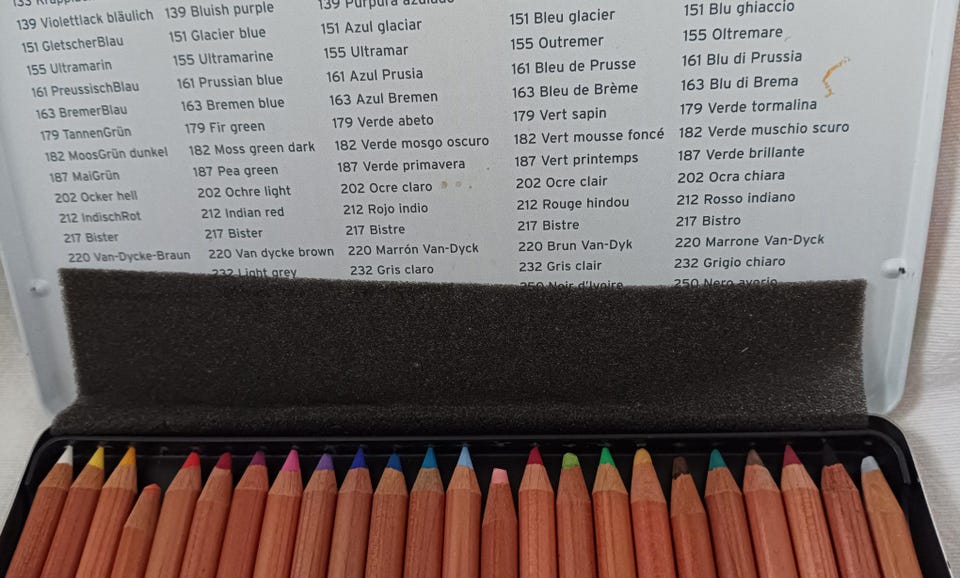 139 Violettlack bläulich
151 GletscherBlau
155 Ultramarin
161 PreussischBlau
163 BremerBlau
179 TannenGrün
182 MoosGrün dunkel
187 MaiGrün
202 Ocker hell
212 IndischRot
217 Bister
220 Van-Dycke-Braun
139 Bluish purple
151 Glacier blue
155 Ultramarine
161 Prussian blue
163 Bremen blue
179 Fir green
182 Moss green dark
187 Pea green
202 Ochre light
212 Indian red
217 Bister
220 Van dycke brown
232 Light grey
139 Púrpura azulado
151 Azul glaciar
155 Ultramar
161 Azul Prusia
163 Azul Bremen
179 Verde abeto
182 Verde mosgo oscuro
187 Verde primavera
202 Ocre claro
212 Rojo indio
217 Bistre
220 Marrón Van-Dyck
232 Gris claro
151 Bleu glacier
155 Outremer
161 Bleu de Prusse
163 Bleu de Brème
179 Vert sapin
182 Vert mousse foncé
187 Vert printemps
202 Ocre clair
212 Rouge hindou
217 Bistre
220 Brun Van-Dyk
232 Gris clair
250 Noir d'Ivoire
151 Blu ghiaccio
155 Oltremare
161 Blu di Prussia
163 Blu di Brema
179 Verde tormalina
182 Verde muschio scuro
187 Verde brillante
202 Ocra chiara
212 Rosso indiano
217 Bistro
220 Marrone Van-Dyck
232 Grigio chiaro
250 Nero avorio